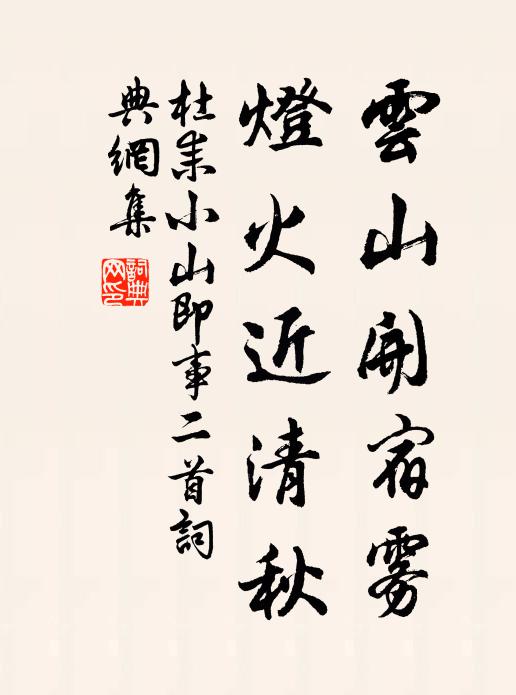 雲山開宿霧
燈火近清秋
杜耒小山即事二首詞
典網集
詞典網印